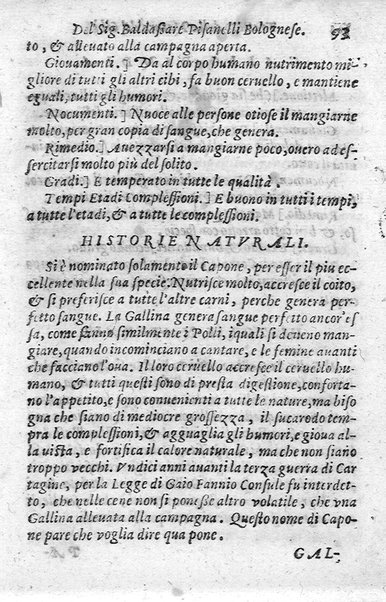 Del Sig. Baldassare Pisanelli Bolognese. 93
to, & alleuato alla campagna aperta.
Giouamenti.] Da al corpo humano nutrimento mi-
gliore di tutti gli altri cibi, fa buon ceruello, e mantiene
eguali, tutti gli humori.
Nocumenti.] Nuoce alle persone otiose il mangiarne
molto, per gran copia di sangue, che genera.
Rimedio.] Auezzarsi a mangiarne poco, ouero ad es-
sercitarsi molto più del solito.
Gradi.] E temperato in tutte le qualità.
Tempi Etadi Complessioni.] E buono in tutti i tempi,
a tutte l'etadi, & a tutte le complessioni.
HISTORIE NATVRALI.
Si è nominato solamento il Capone, per esser il più ec-
cellente nella sua specie. Nutrisce molto, accresce il coito,
& si preferisce a tutte l'altre carni, perche genera per-
fetto sangue. La Gallina genera sangue perfetto ancor'es
sa, come fanno similmente i Polli, i quali si deueno man-
giare, quando incominciano a cantare, e le femine auanti
che facciano l'oua. Il loro ceruello accresce il ceruello hu-
mano, & tutti questi sono di presta digestione, conforta-
no l'appetito, e sono conuenienti a tutte le nature, ma biso
gna che siano di mediocre grossezza, il suco redo tem-
pra le complessioni, & agguaglia gli humori, e gioua al-
la uista, e fortifica il calore naturale, ma che non siano
troppo vecchi. Vndici anni auanti la terza guerra di Car
tagine, per la Legge di Gaio Fannio Consule fu interdet-
to, che nelle cene non si ponesse altro volatile, che vna
Gallina alleuata alla campagna. Questo nome di Capo-
ne pare che voglia dire qua pone.
GAL-